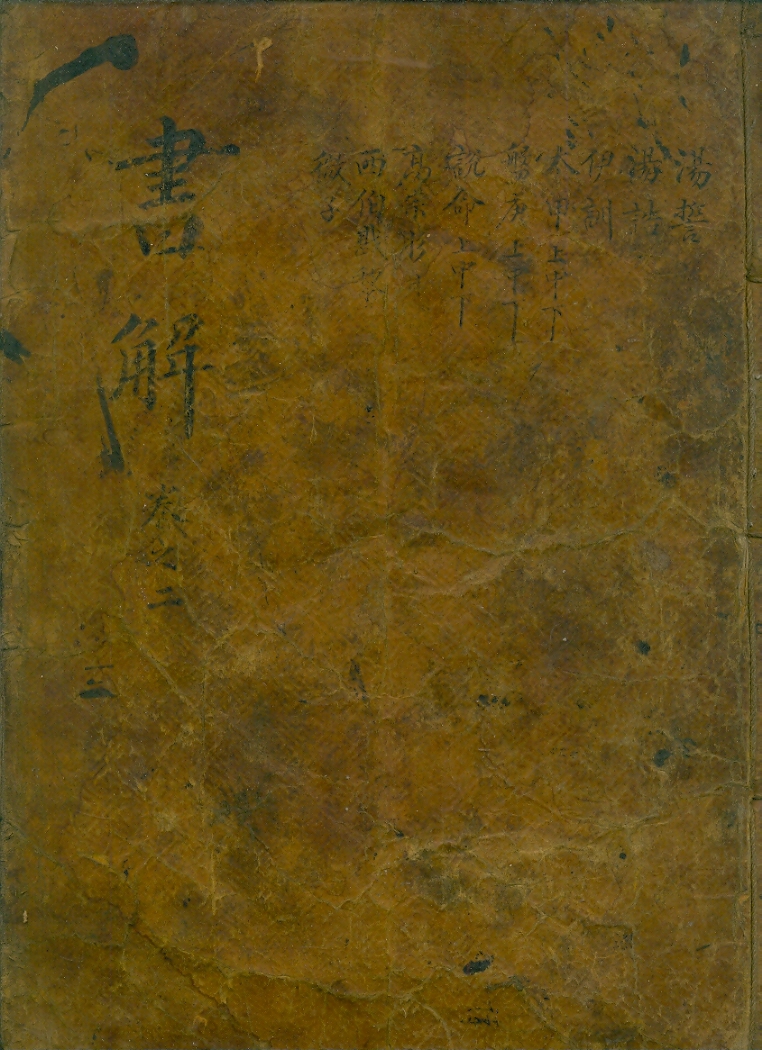 湯誓
湯誥
伊訓
太甲上中下
盤庚上中下
說命上中下
高宗肜日
西伯戡黎
微子
書解
卷之二